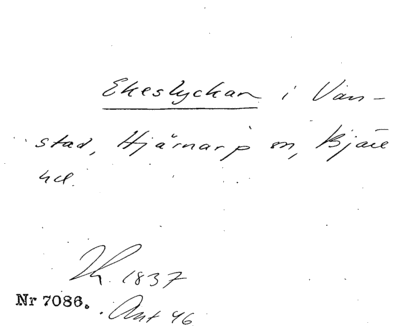 Ekeslyckan i Van-
stad, Hjärnarp sn, Bjäre
hd.
1837
Nr 7086. Ant 46